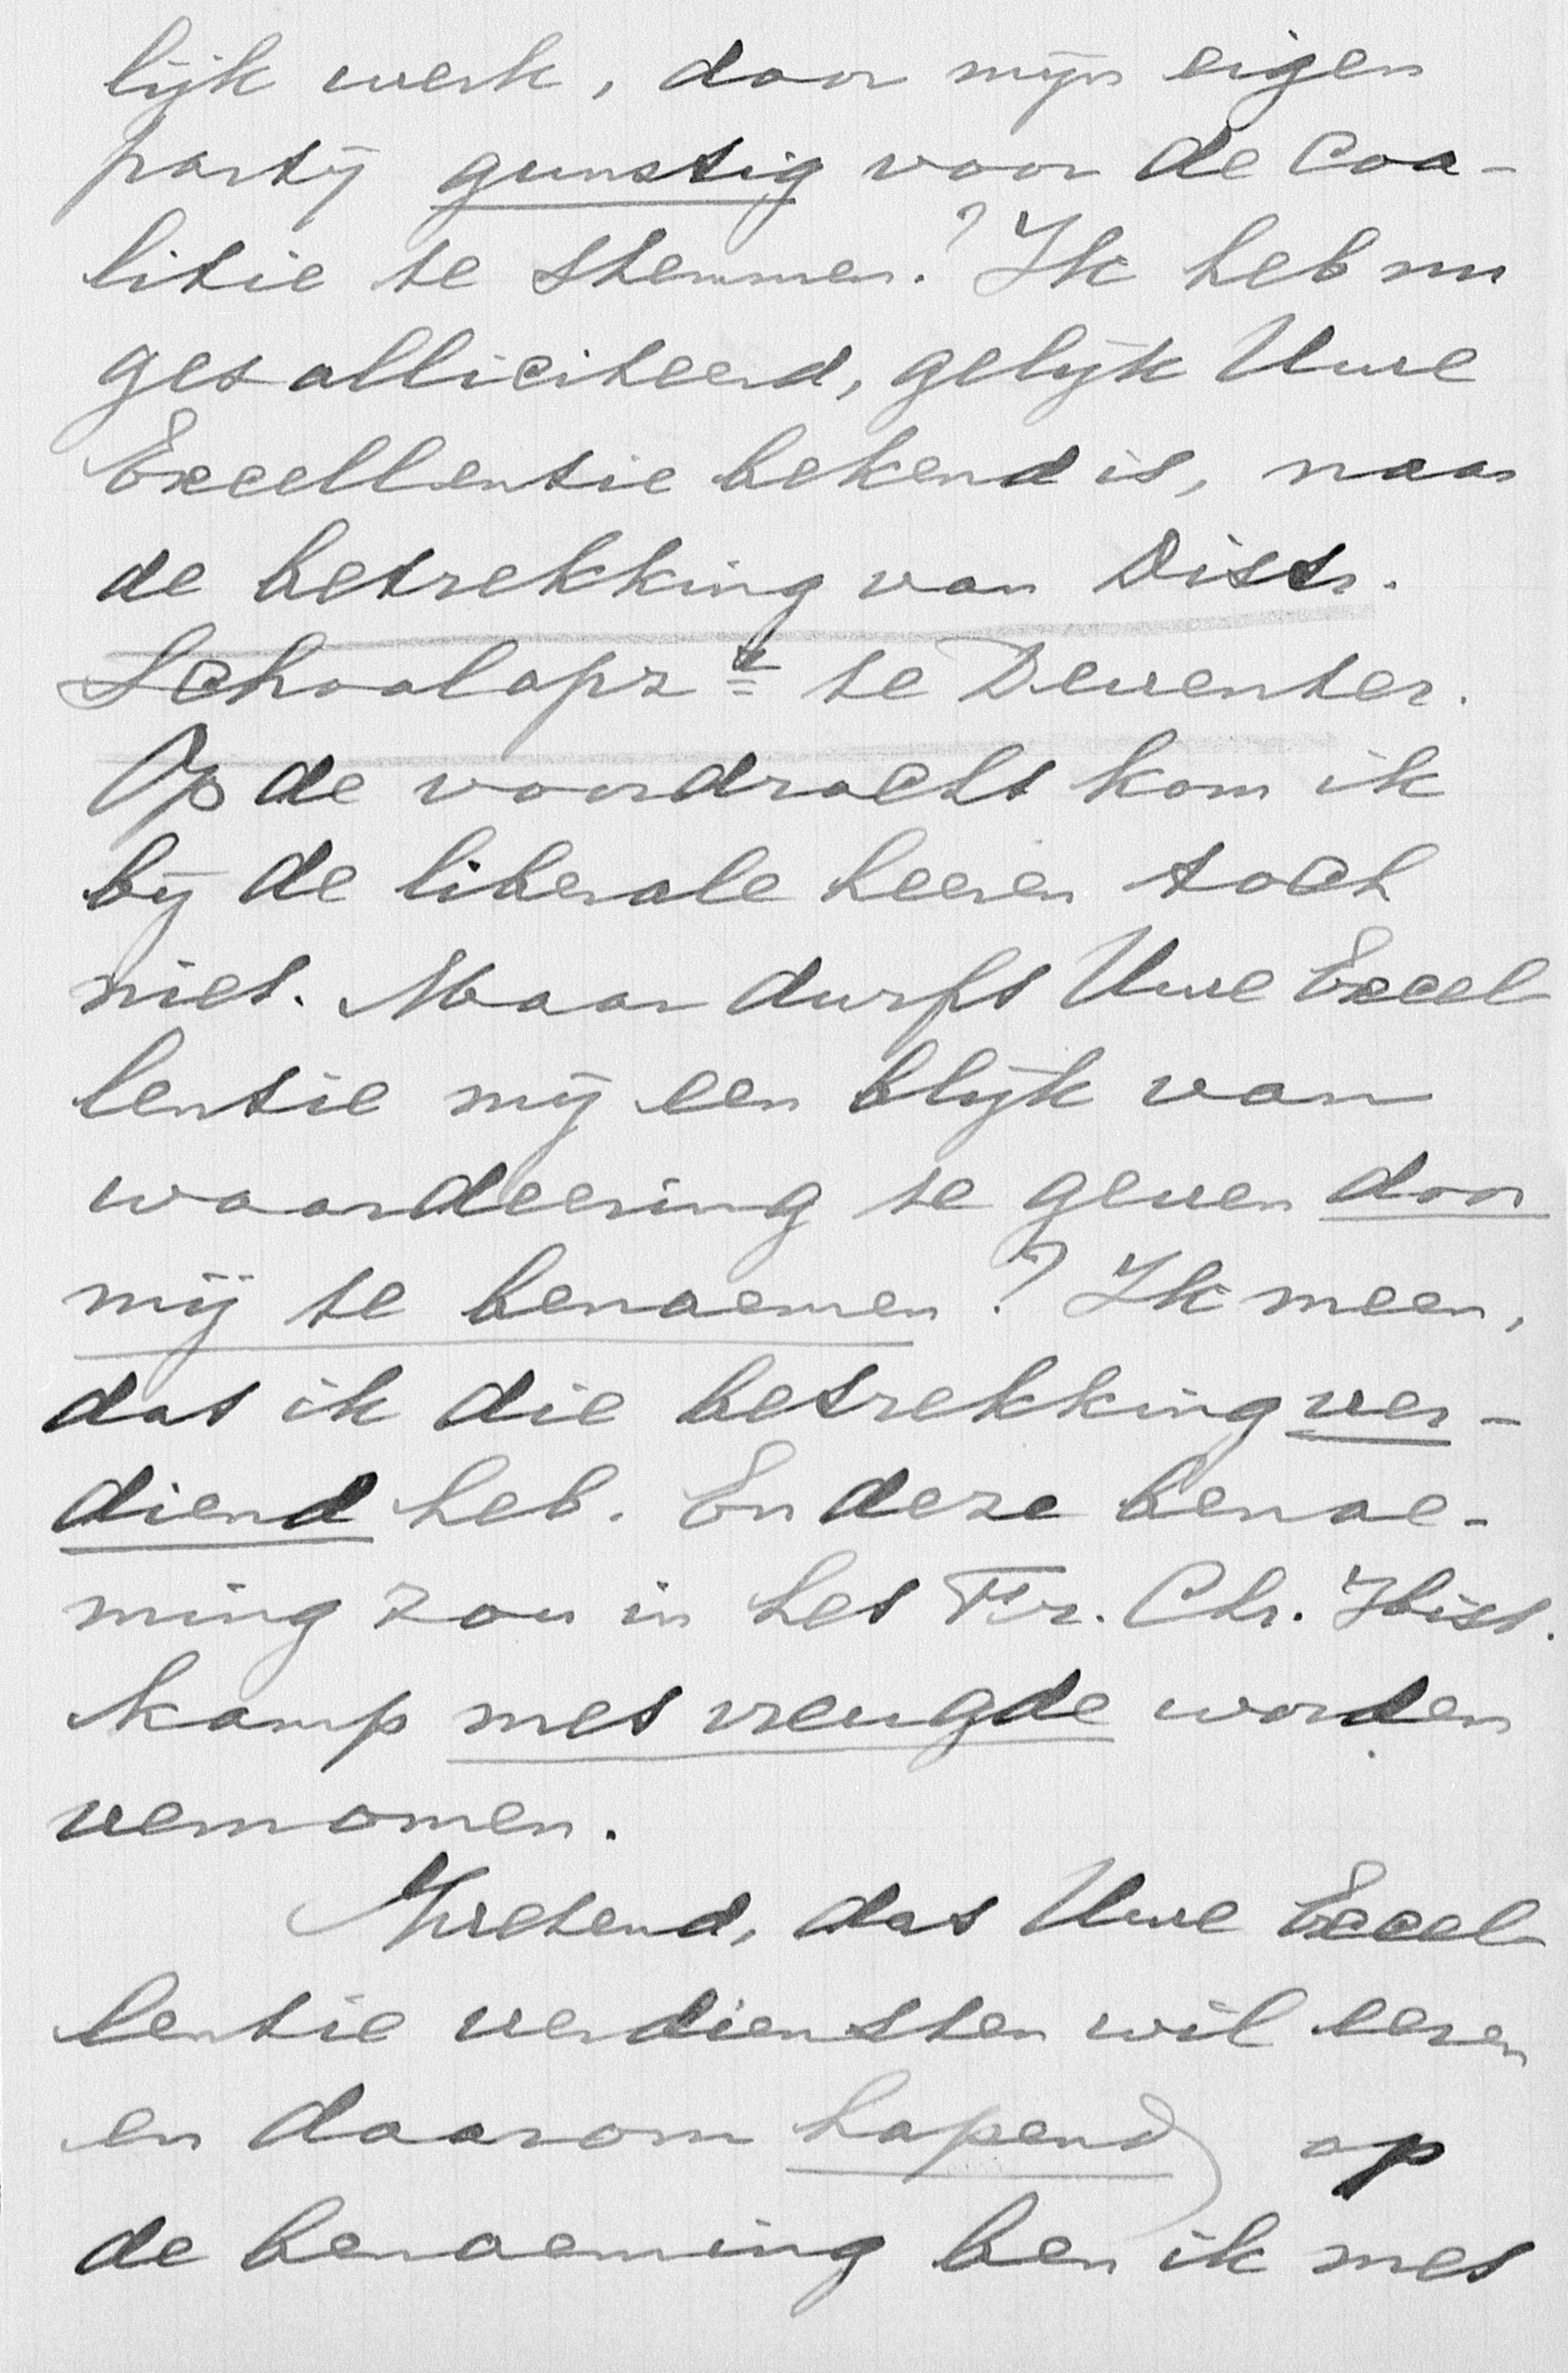 lijk werk, door mijn eigen
partij gunstig voor de Coa-
litie te stemmen? Ik heb nu
gesolliciteerd, gelijk Uwe
Excellentie bekend is, naar
de betrekking van Distr.
Schoolopzr te Deventer.
Op de voordracht kom ik
bij de liberale heeren toch
niet. Maar durft Uwe Excel
lentie mij een blijk van
waardeering te geven door
mij te benoemen? Ik meen,
dat ik die betrekking ver-
diend heb. En deze benoe-
ming zou in het Pr. Chr. Hist.
kamp met vreugde worden
vernomen.
Wetend, dat Uwe Excel
lentie verdiensten wil eeren
en daarom hopend op
de benoeming ben ik met